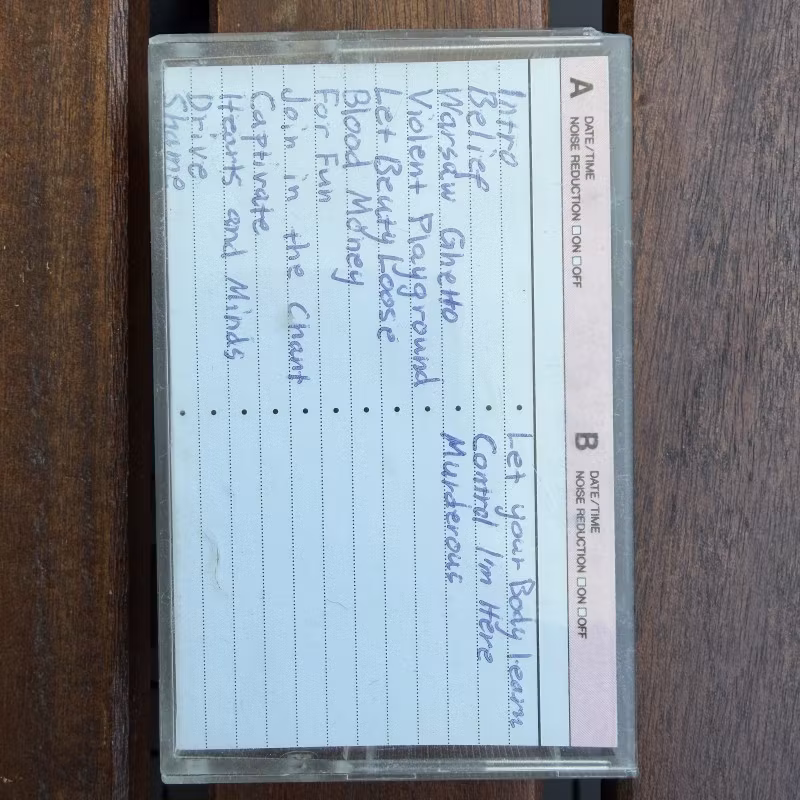 A
DATE/TIME
NOISE REDUCTION □ON □OFF
Intro
Belief
Warsaw Ghetto
Violent Playground
Let Beuty Loose
Blood Money
For Fun
Join in the Chant
Captivate
Hearts and Minds
Drive
Shame
B
DATE/TIME
NOISE REDUCTION □ON □OFF
Let your Body Learn
Control I'm Here
Murderous